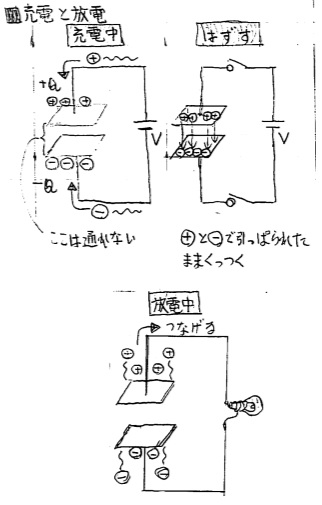 充電と放電
充電中
はずす
⊕
+Q
⊕ ⊕ ⊕
V
⊖ ⊖ ⊖
-Q
⊖
ここは通れない
⊕⊕ ⊕⊕
⊖⊖⊖⊖
V
⊕と⊖で引っぱられた
ままくっつく
放電中
つなげる
⊕ ⊕
⊕ ⊕
⊖ ⊖
⊖ ⊖